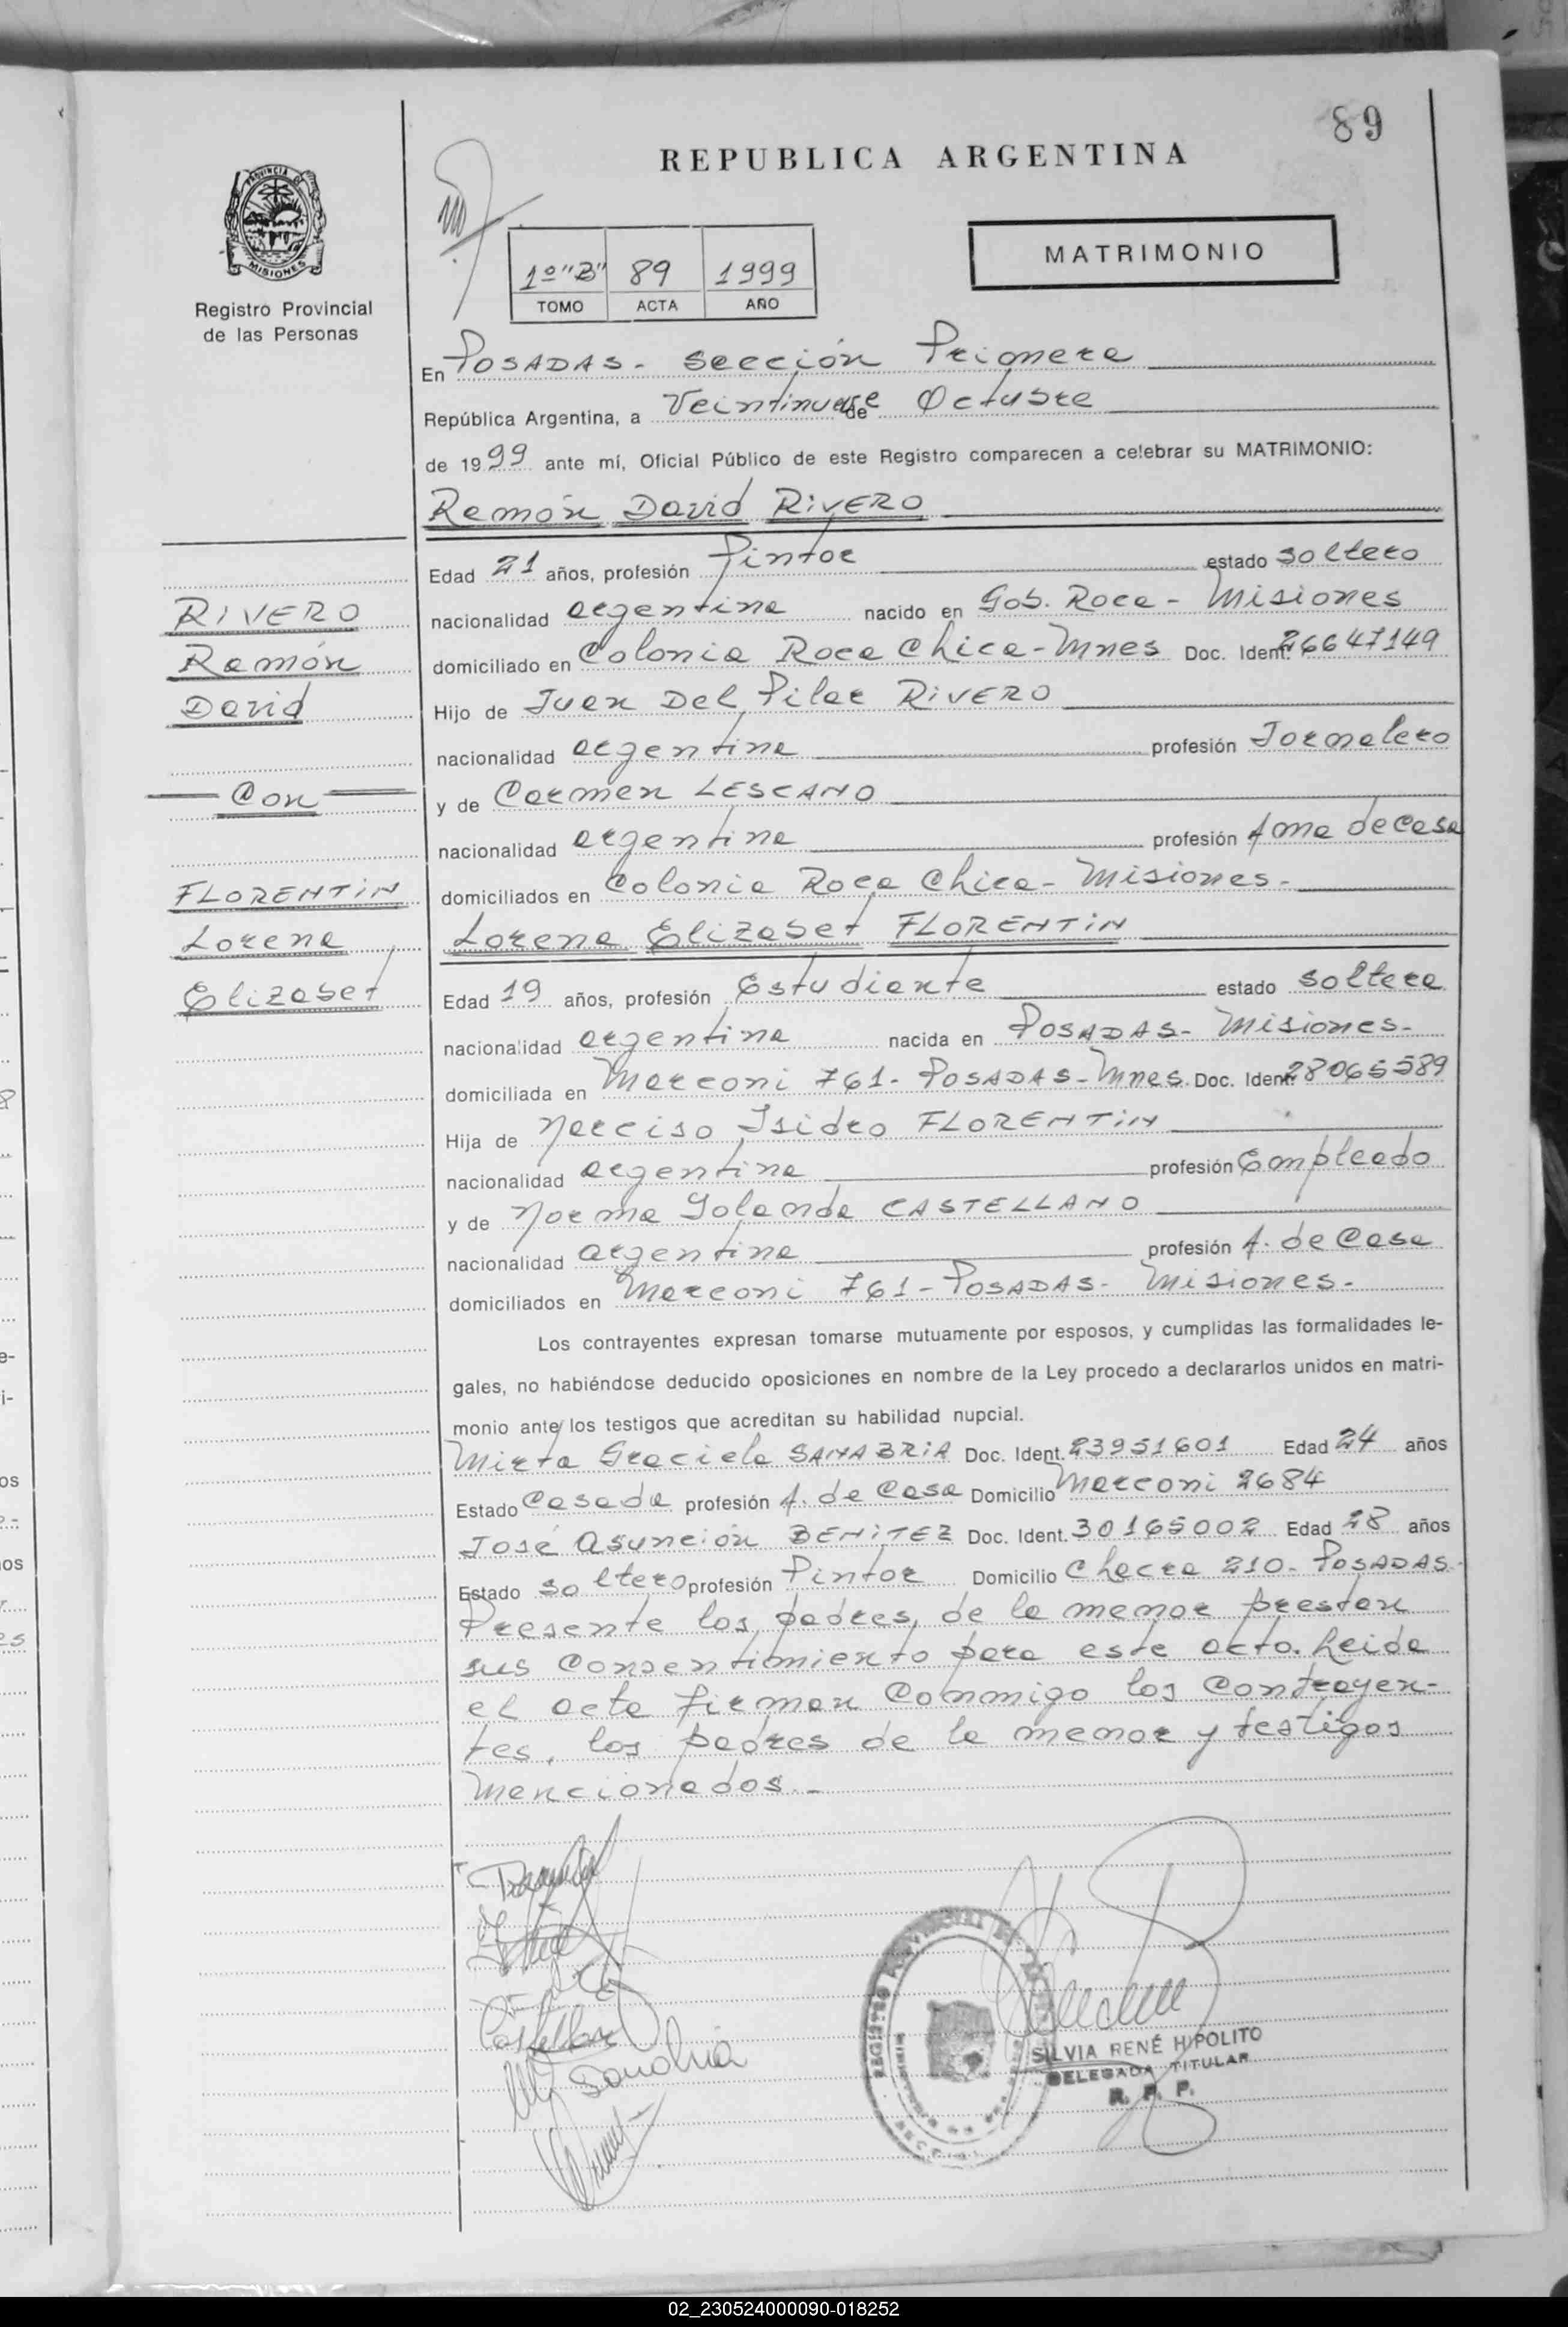 89
REPUBLICA ARGENTINA
PROVINCIA DE
MISIONES
Registro Provincial
de las Personas
1º "B" 89 1999
TOMO ACTA AÑO
MATRIMONIO
En POSADAS - Sección Primera
República Argentina, a Veintinueve de Octubre
de 1999 ante mí, Oficial Público de este Registro comparecen a celebrar su MATRIMONIO:
Ramón David RIVERO
Edad 21 años, profesión Pintor estado soltero
RIVERO
nacionalidad argentina nacido en Gob. Roca - Misiones
Ramón
domiciliado en Colonia Roca Chica - Mnes Doc. Ident. 26647149
David
Hijo de Juan Del Pilar RIVERO
nacionalidad argentina profesión Jornalero
Con
y de Carmen LESCANO
nacionalidad argentina profesión Ama de casa
FLORENTIN
domiciliados en Colonia Roca Chica - Misiones -
Lorena
Lorena Elizabet FLORENTIN
Elizabet
Edad 19 años, profesión Estudiante estado soltera
nacionalidad argentina nacida en POSADAS - Misiones -
domiciliada en Marconi 761 - POSADAS - Mnes. Doc. Ident. 28065589
Hija de Narciso Isidro FLORENTIN
nacionalidad argentina profesión Empleado
y de Norma Yolanda CASTELLANO
nacionalidad argentina profesión A. de Casa
domiciliados en Marconi 761 - POSADAS - Misiones -
Los contrayentes expresan tomarse mutuamente por esposos, y cumplidas las formalidades le-
gales, no habiéndose deducido oposiciones en nombre de la Ley procedo a declararlos unidos en matri-
monio ante los testigos que acreditan su habilidad nupcial.
Mirta Graciela SANABRIA Doc. Ident. 23951601 Edad 24 años
Estado Casada profesión A. de Casa Domicilio Marconi 2684
José Asunción BENITEZ Doc. Ident. 30165002 Edad 28 años
Estado soltero profesión Pintor Domicilio Chacra 210 - POSADAS -
Presente los padres de la menor prestan
sus consentimiento para este acto. Leida
el acta firman conmigo los contrayen-
tes, los padres de la menor y testigos
mencionados. -
Castellano
Sanabria
SILVIA RENÉ HIPOLITO
DELEGADA TITULAR
R. P. P.
02_230524000090-018252